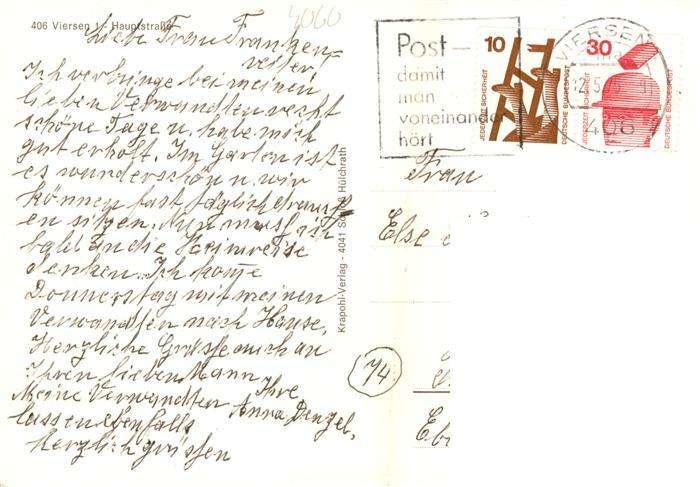 406 Viersen 1 - Hauptstraße
4060
Liebe Frau Franken-
Ich verbringe bei meinen
lieben Verwandten recht
schöne Tage u. habe mich
gut erholt. Im Garten ist
es wunderschön u. wir
können fast täglich drauß
en sitzen. Nun muß ich
bald an die Heimreise
denken. Ich komme
Donnerstag mit meinen
Verwandten nach Hause.
Herzliche Grüsse auch an
Ihren lieben Mann
Ihre
Anna Denzel.
Meine Verwandten
lassen ebenfalls
herzlich grüssen
Krapohl-Verlag - 4041 Schloß Hülchrath
Post -
damit
man
voneinander
hört
10
JEDERZEIT SICHERHEIT
DEUTSCHE BUNDESPOST
30
JEDERZEIT SICHERHEIT
DEUTSCHE BUNDESPOST
VIERSEN
406
Frau
Else
74
Eb